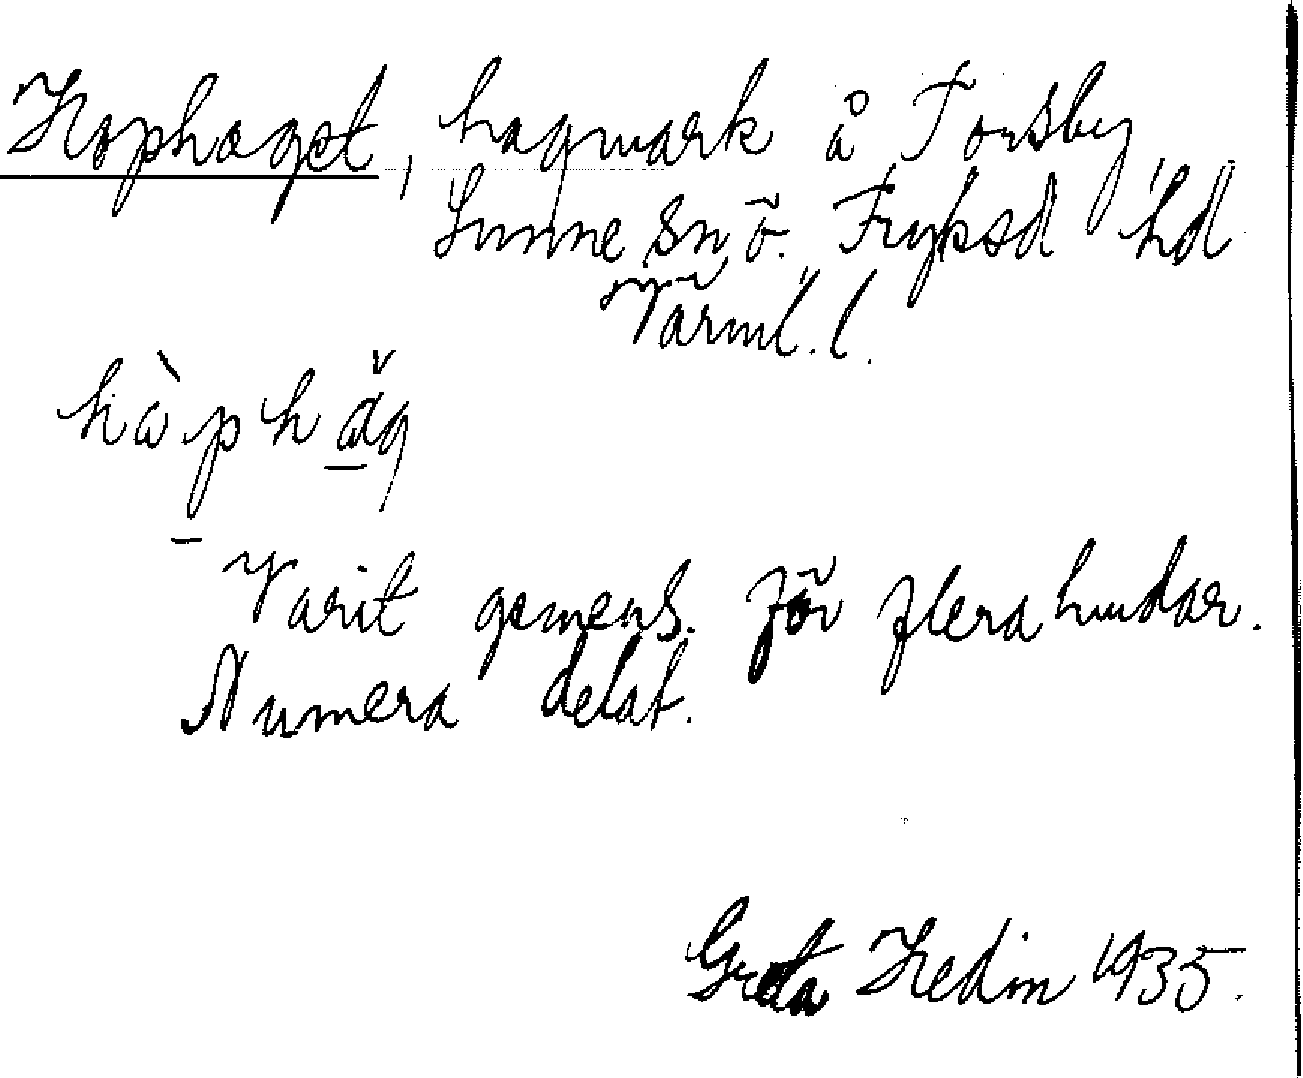 Hophaget, hagmark å Torsby
Sunne sn ö. Fryksd hd
Värml. l.
hὼphăg
Varit gemens. för flera hundar.
Numera delat.
Greta Hedin 1935.